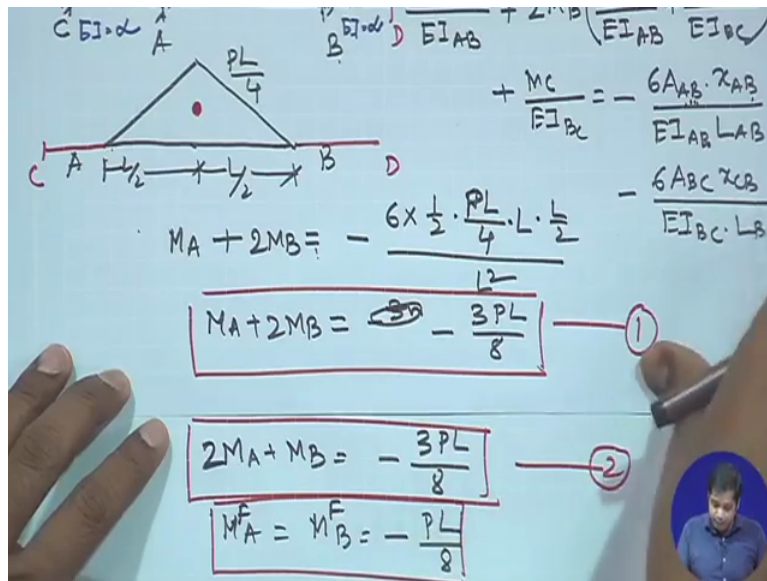 C EI=∝ A
B EI=∝ D
EI_AB + 2M_B ( EI_AB EI_BC
+ M_C/EI_BC = - 6A_AB · x_AB / EI_AB L_AB
- 6A_BC x_CB / EI_BC · L_B
PL/4
C A L/2 L/2 B D
M_A + 2M_B = - 6 × 1/2 · PL/4 · L · L/2 / L²
M_A + 2M_B = - 3PL/8 ①
2M_A + M_B = - 3PL/8 ②
M^F_A = M^F_B = - PL/8